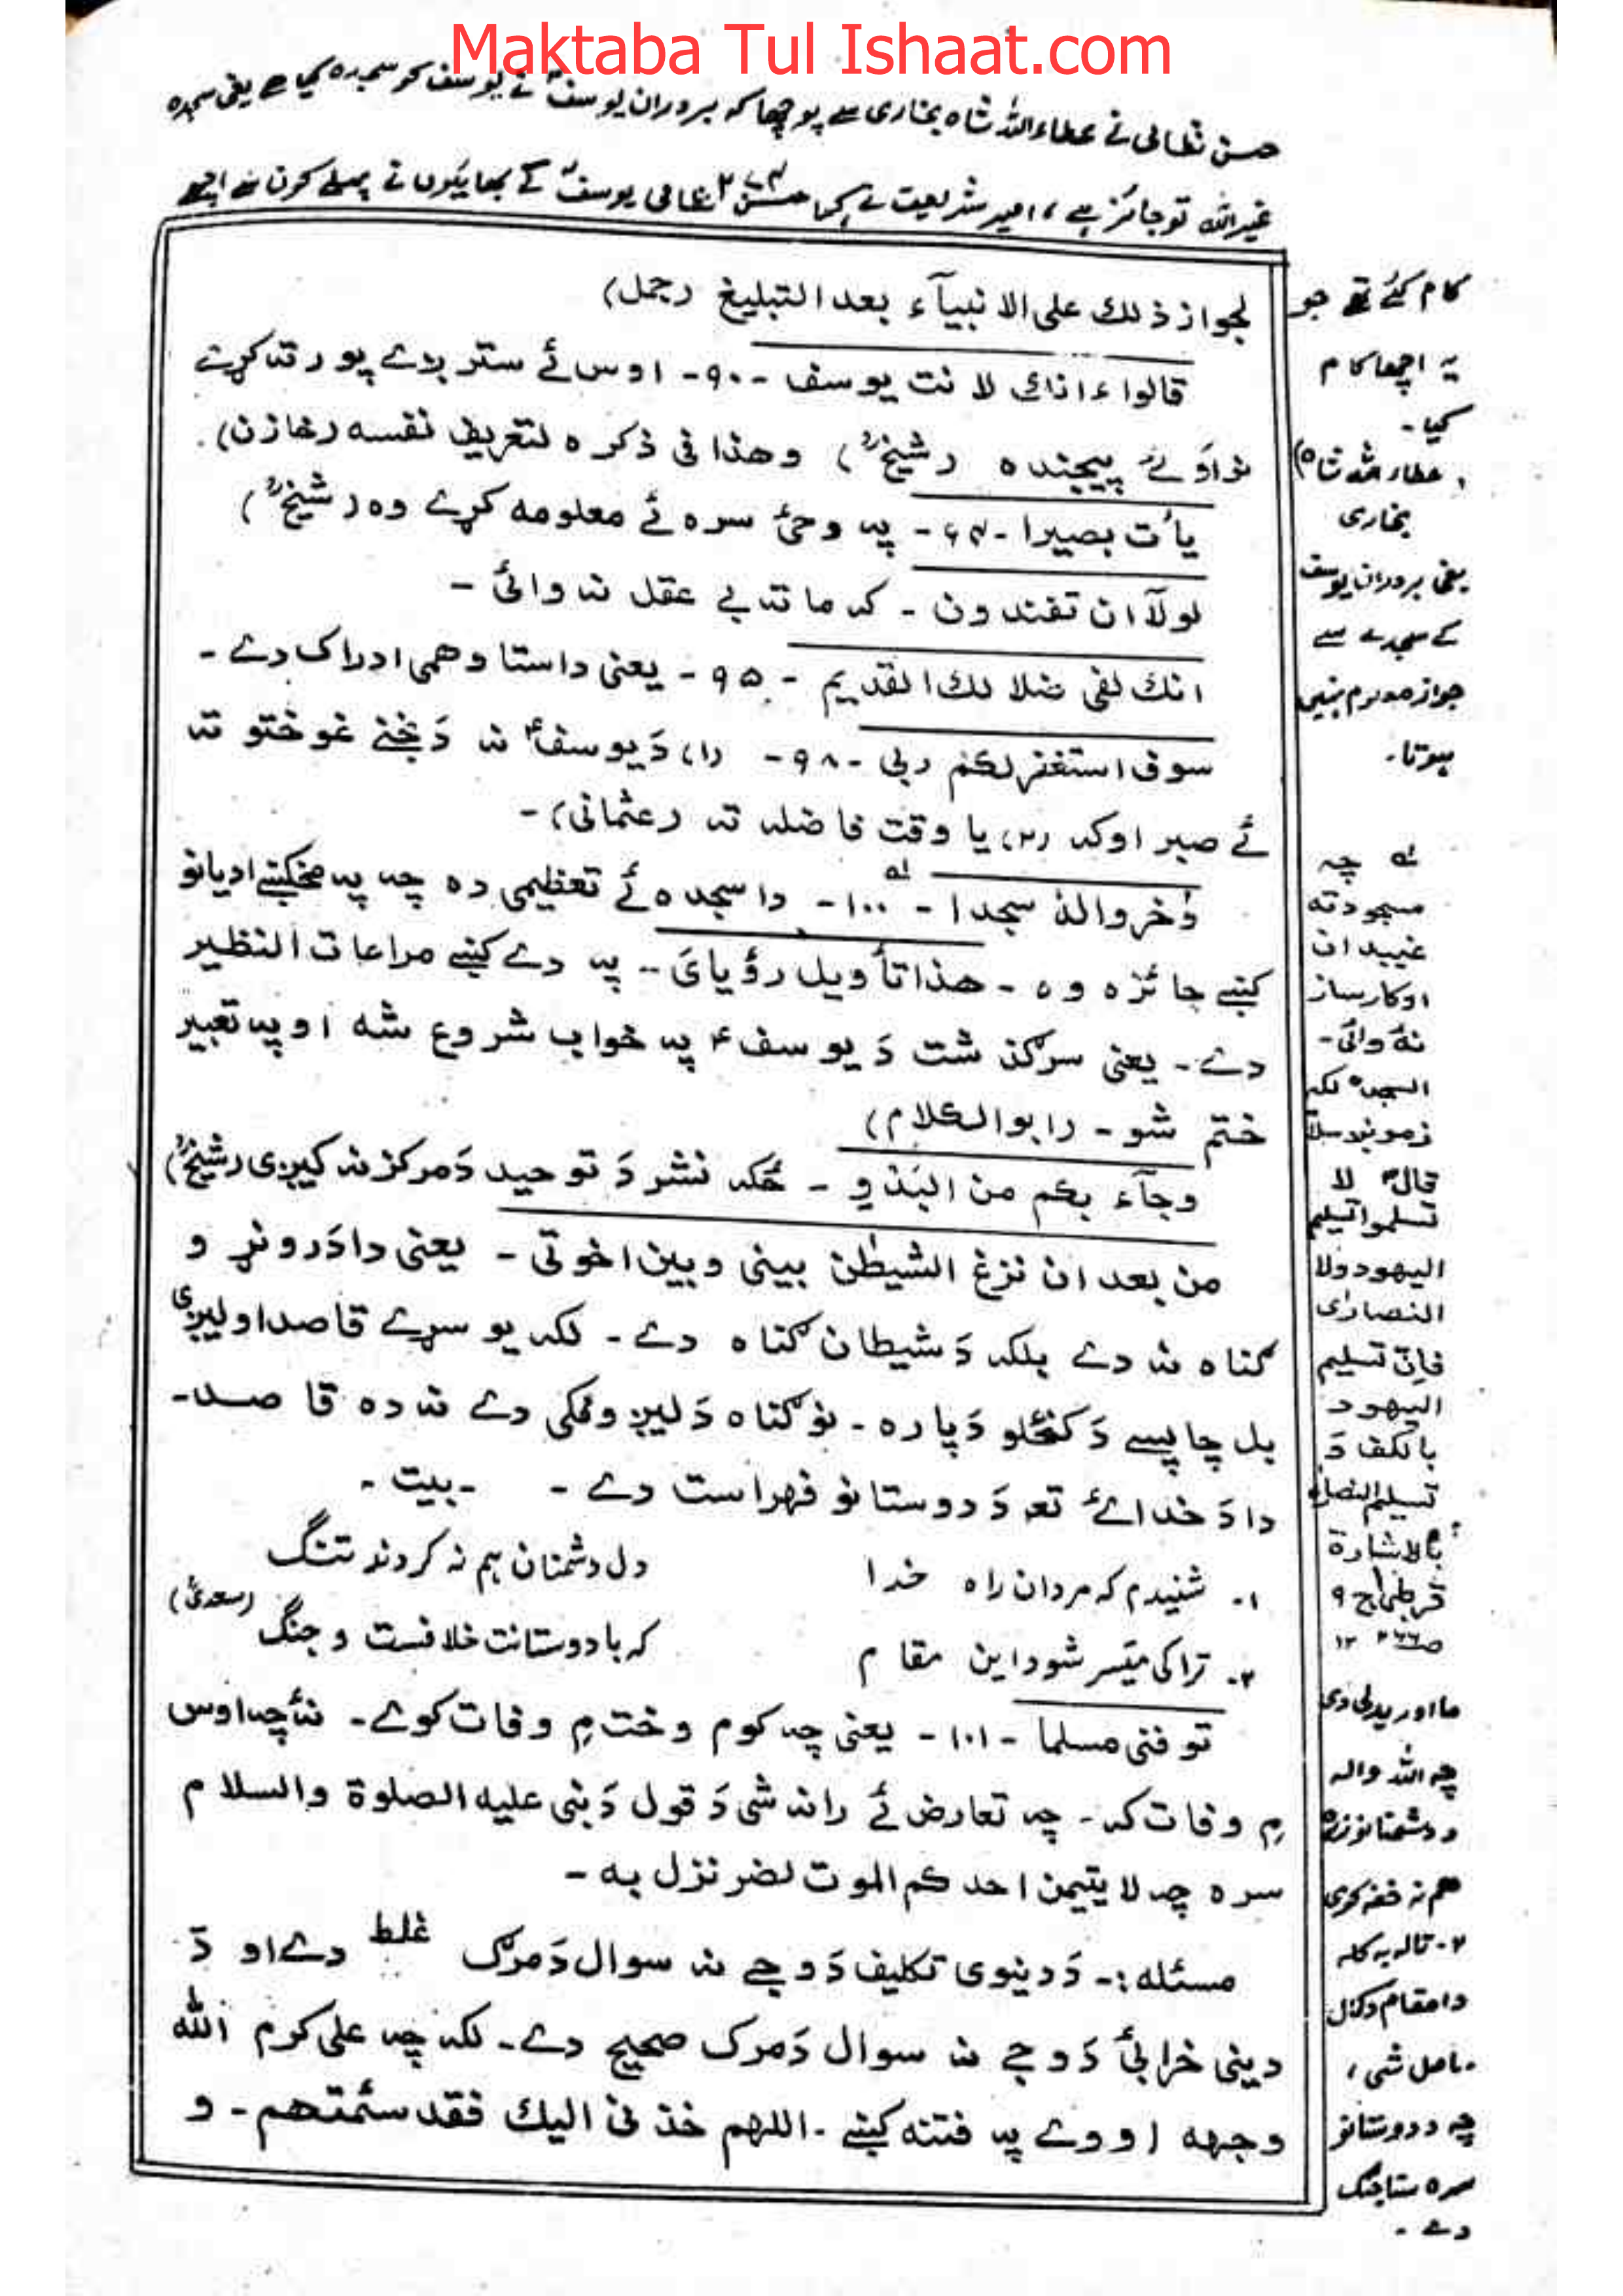 Maktaba Tul Ishaat.com
حسن نظامی نے عطاء اللہ شاہ بخاری سے پوچھا کہ بروران یوسفؑ نے یوسف کو سجدہ کیا ہے یعنی سجدہ
غیر اللہ تو جائز ہے، امیر شریعت نے کہا حسن نظامی یوسفؑ کے بھائیوں نے پہلے کون سے اچھے
کام کئے تھے جو
یہ اچھا کام
کیا۔
(عطاء اللہ شاہ
بخاری
یعنی بروران یوسف
کے سجدے سے
جواز معلوم نہیں
ہوتا۔
لجواز ذلك علی الانبیآء بعد التبلیغ (جمل)
قالوا ءانك لانت یوسف -۹۰- اوس ئے ستر پردے پورته کړے
نو اوئے پیجنده (شیخؒ) وهذا فی ذکره لتعریف نفسه (خازن).
یأت بصیرا -۹۳- په وحئ سره ئے معلومه کړے وه (شیخؒ)
لولآ ان تفندون - که ما ته بے عقل نه وائی -
انك لفی ضلالك القدیم - ۹۵ - یعنی دا ستا وهمی ادراک دے -
سوف استغفرلکم ربی -۹۸- (۱) دَ یوسفؑ نه دَ بخنے غوختو ته
ئے صبر اوکه (۲) یا وقت فاضله ته (عثمانی) -
وَخروا له سجدا - ۱۰۰ - دا سجده ئے تعظیمی ده چه په مخکنے ادیانو
کنے جائزه وه - هذا تأویل رؤیای - په دے کنے مراعات النظیر
دے - یعنی سرگذشت دَ یوسف ؑ په خواب شروع شه او په تعبیر
ختم شو - (ابوالکلام)
وجآء بکم من البَدْوِ - ځکه نشر دَ توحید دَ مرکز نه کیږی (شیخؒ)
من بعد ان نزغ الشیطٰن بینی وبین اخوتی - یعنی دا دَ روڼو
ګناه نه دے بلکه دَ شیطان ګناه دے - لکه یو سړے قاصد اولیږی
بل چا پسے دَ کنځلو دَپاره - نو ګناه دَ لیږونکی دے نه ده قاصد -
دا دَ خدائے ته دَ دوستانو فهراست دے - - بیت -
۱- شنیدم که مردان راه خدا دل دشمنان هم نه کردند تنگ
۲- ترا کی میّسر شود این مقام که با دوستانت خلافست و جنگ (سعدیؒ)
توفنی مسلما - ۱۰۱ - یعنی چه کوم وخت مِ وفات کوے - نۀ چه اوس
مِ وفات که - چه تعارض ئے رانه شی دَ قول دَ نبی علیه الصلوة والسلام
سره چه لا یتیمن احدکم الموت لضر نزل به -
مسئله :- دَ دینوی تکلیف دَ وجے نه سوال دَ مرګ غلط دے او دَ
دینی خرابئ دَ وجے نه سوال دَ مرګ صحیح دے - لکه چه علی کرم الله
وجهه اووے په فتنه کنے - اللهم خذنی الیك فقد سئمتهم - و
لـه چه
مسجود ته
غیبدان
اوکارساز
نۀ وائی -
السجده لکه
زمونږ سلام
قالؑ لا
تسلموا تسلیم
الیهود ولا
النصاریٰ
فاِنّ تسلیم
الیهود
بالکف دَ
تسلیم النصاریٰ
بالاشارة
قرطبی ج ۹
ص۲۶۶ ۱۲
ما اوریدلی دی
چه الله واله
د دشمنانو زړه
هم نه خفه کوی
۲- تا له به کله
دا مقام د کمال
حاصل شی،
چه د دوستانو
سره ستا جنگ
دے -